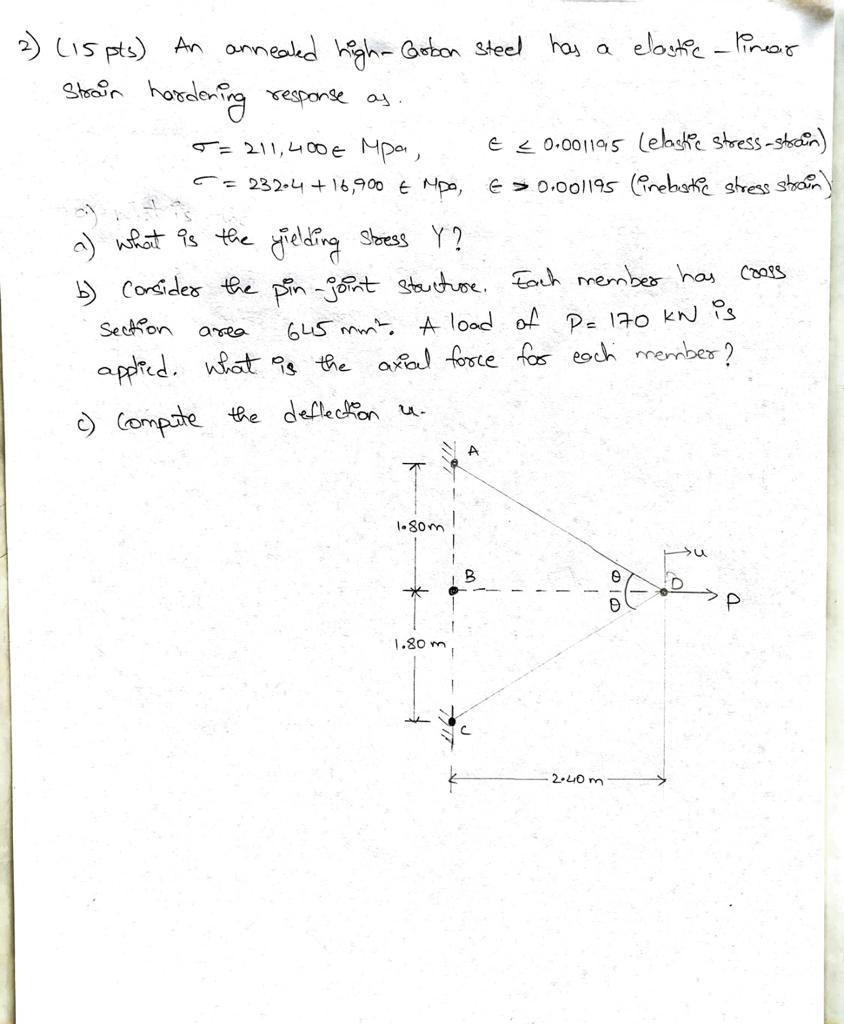 2) (15 pts) An annealed high-Carbon steel has a elastic-linear
Strain hardening response as.
σ = 211,400 ϵ Mpa, ϵ ≤ 0.001195 (elastic stress-strain)
σ = 232.4 + 16,900 ϵ Mpa, ϵ > 0.001195 (inelastic stress strain)
a) what is the yielding stress Y?
b) Consider the pin-joint structure. Each member has cross
section area 645 mm². A load of P= 170 KN is
applied. what is the axial force for each member?
c) Compute the deflection u.
A
1.80m
u
B
θ
D
θ
P
1.80 m
C
2.40 m